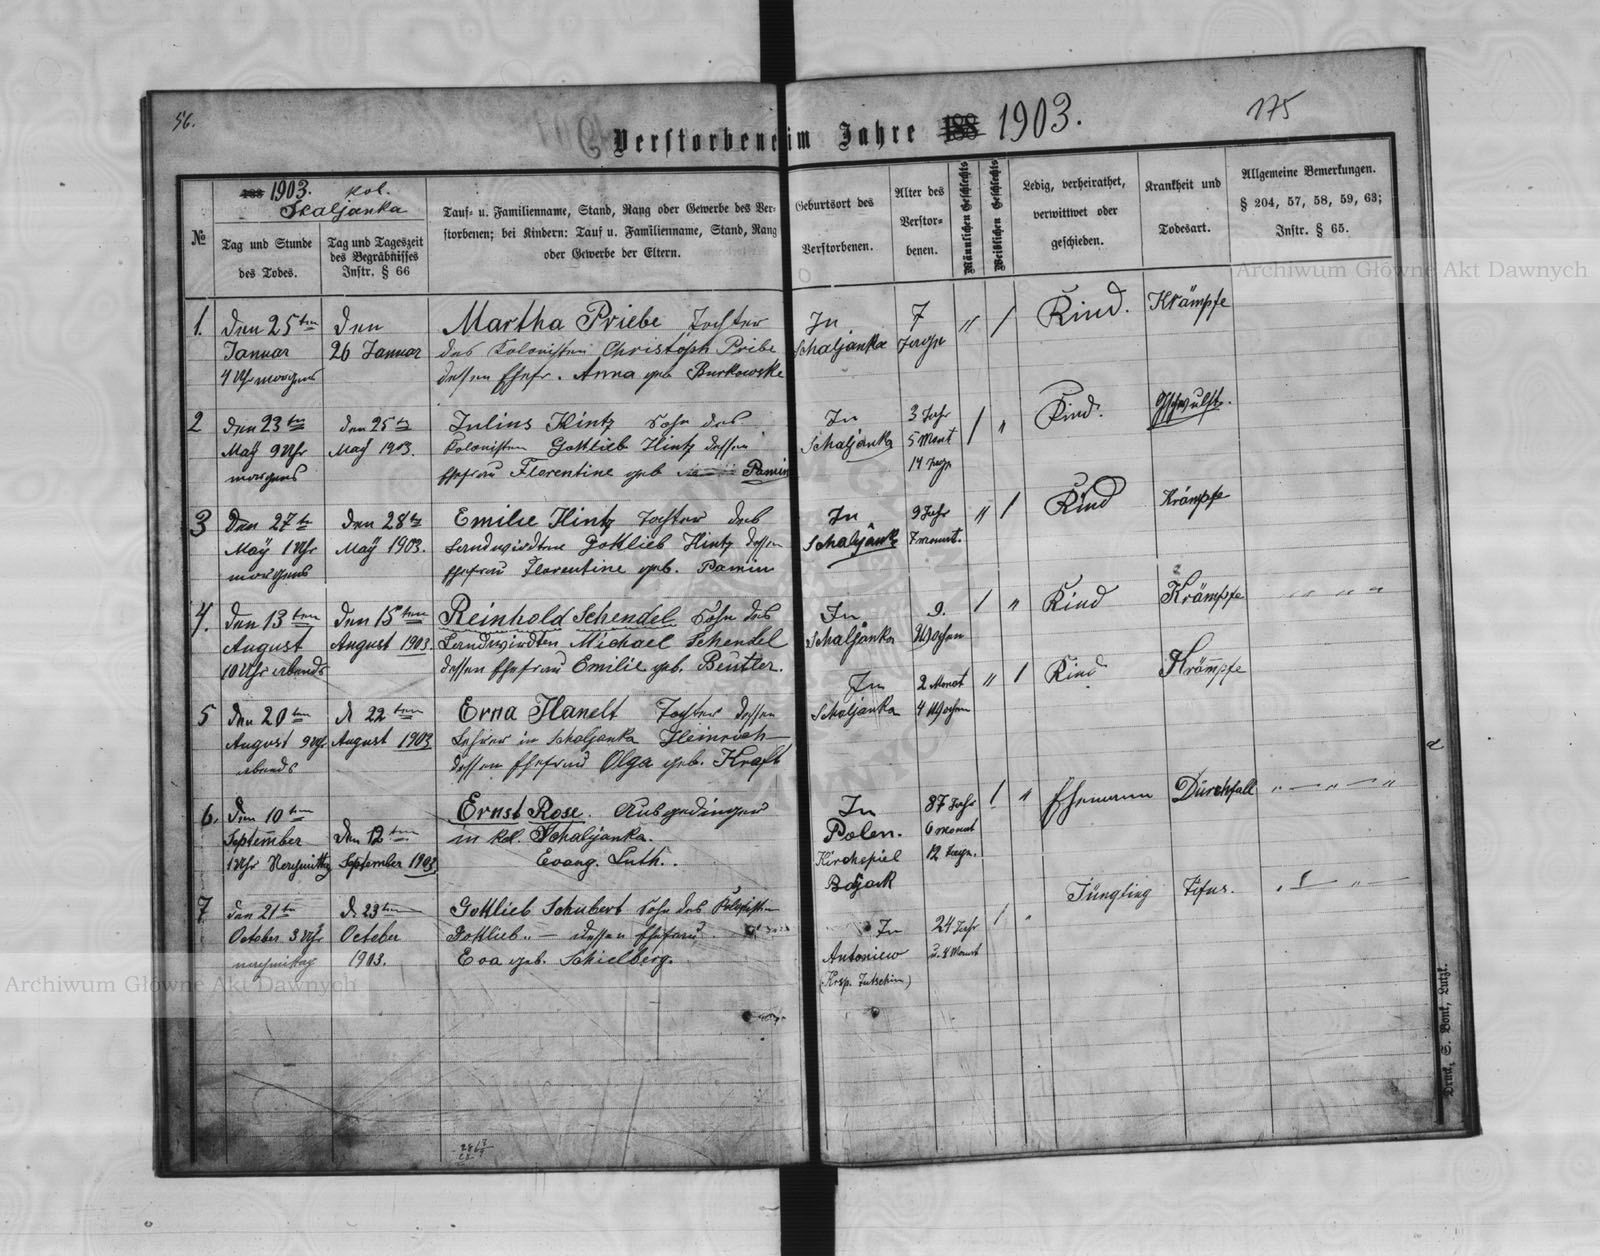 56.
175
Verstorbene im Jahre 188 1903.
188 1903. Kol.
Skaljanka
№
Tag und Stunde
des Todes.
Tag und Tageszeit
des Begräbnisses
Instr. § 66
Tauf- u. Familienname, Stand, Rang oder Gewerbe des Ver-
storbenen; bei Kindern: Tauf u. Familienname, Stand, Rang
oder Gewerbe der Eltern.
Geburtsort des
Verstorbenen.
Alter des
Verstor-
benen.
Männlichen Geschlechts
Weiblichen Geschlechts
Ledig, verheirathet,
verwittwet oder
geschieden.
Krankheit und
Todesart.
Allgemeine Bemerkungen.
§ 204, 57, 58, 59, 63;
Instr. § 65.
1.
den 25ten
Januar
4 Uhr morgens
den
26 Januar
Martha Priebe Tochter
des Kolonisten Christoph Pribe
dessen Ehefr. Anna geb Burkowske
In
Schaljanka
7
Tage
" /
Kind.
Krämpfe
2
den 23ten
May 9 Uhr
morgens
den 25te
May 1903.
Julius Hintz Sohn des
Kolonisten Gottlieb Hintz dessen
Ehefrau Florentine geb Pamin
In
Schaljanka
3 Jahr
5 Mont
14 Tage
/ "
Kind.
Geschwulst.
3
Den 27te
Maÿ 1 Uhr
morgens
den 28te
Maÿ 1903.
Emilie Hintz Tochter des
Landwirdten Gottlieb Hintz dessen
Ehefrau Florentine geb. Pamin
In
Schaljanka
9 Jahr
7 monat.
" /
Kind
Krämpfe
4.
den 13ten
August
10 Uhr abends
den 15ten
August 1903
Reinhold Schendel Sohn des
Landwirdten Michael Schendel
dessen Ehefrau Emilie geb. Beutler.
In
Schaljanka
9.
Wochen
/ "
Kind
Krämpfe
" " " "
5
den 20ten
August 9 Uhr
abends
d 22ten
August 1903
Erna Hanelt Tochter dessen
Lehrer in Schaljanka Heinrich
dessen Ehefrau Olga geb. Kraft
In
Schaljanka
2 Monat
4 Wochen
" /
Kind
Krämpfe
6.
den 10ten
September
1 Uhr Nachmittag
den 12ten
September 1903
Ernst Rose. Ausgedinger
in Kol. Schaljanka.
Evang. Luth..
In
Polen.
Kirchspiel
87 Jahr
6 monat
12 Tage.
/ "
Ehemann
Durchfall
" — " — "
7
den 21te
October 3 Uhr
nachmittag
d 23ten
October
1903.
Gottlieb Schubert Sohn des Kolonisten
Gottlieb " — dessen Ehefrau
Eva geb. Schielberg.
In
Antoniew
(Krsp. Tutschin)
24 Jahr
u. 4 Monat
/ "
Jüngling
Tifus.
Druck, S. Bonk, Lutzk.
Archiwum Główne Akt Dawnych
Archiwum Główne Akt Dawnych